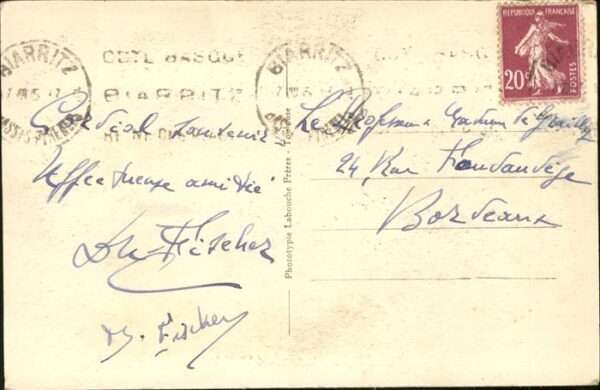 BIARRITZ
COTE BASQUE
BIARRITZ
BIARRITZ
RÉPUBLIQUE FRANÇAISE
20c
POSTES
Cordial souvenir
Affectueuse amitié
Dr Fischer
Fischer
Phototypie Labouche Frères - Toulouse
Le Professeur
24 Rue
Bordeaux